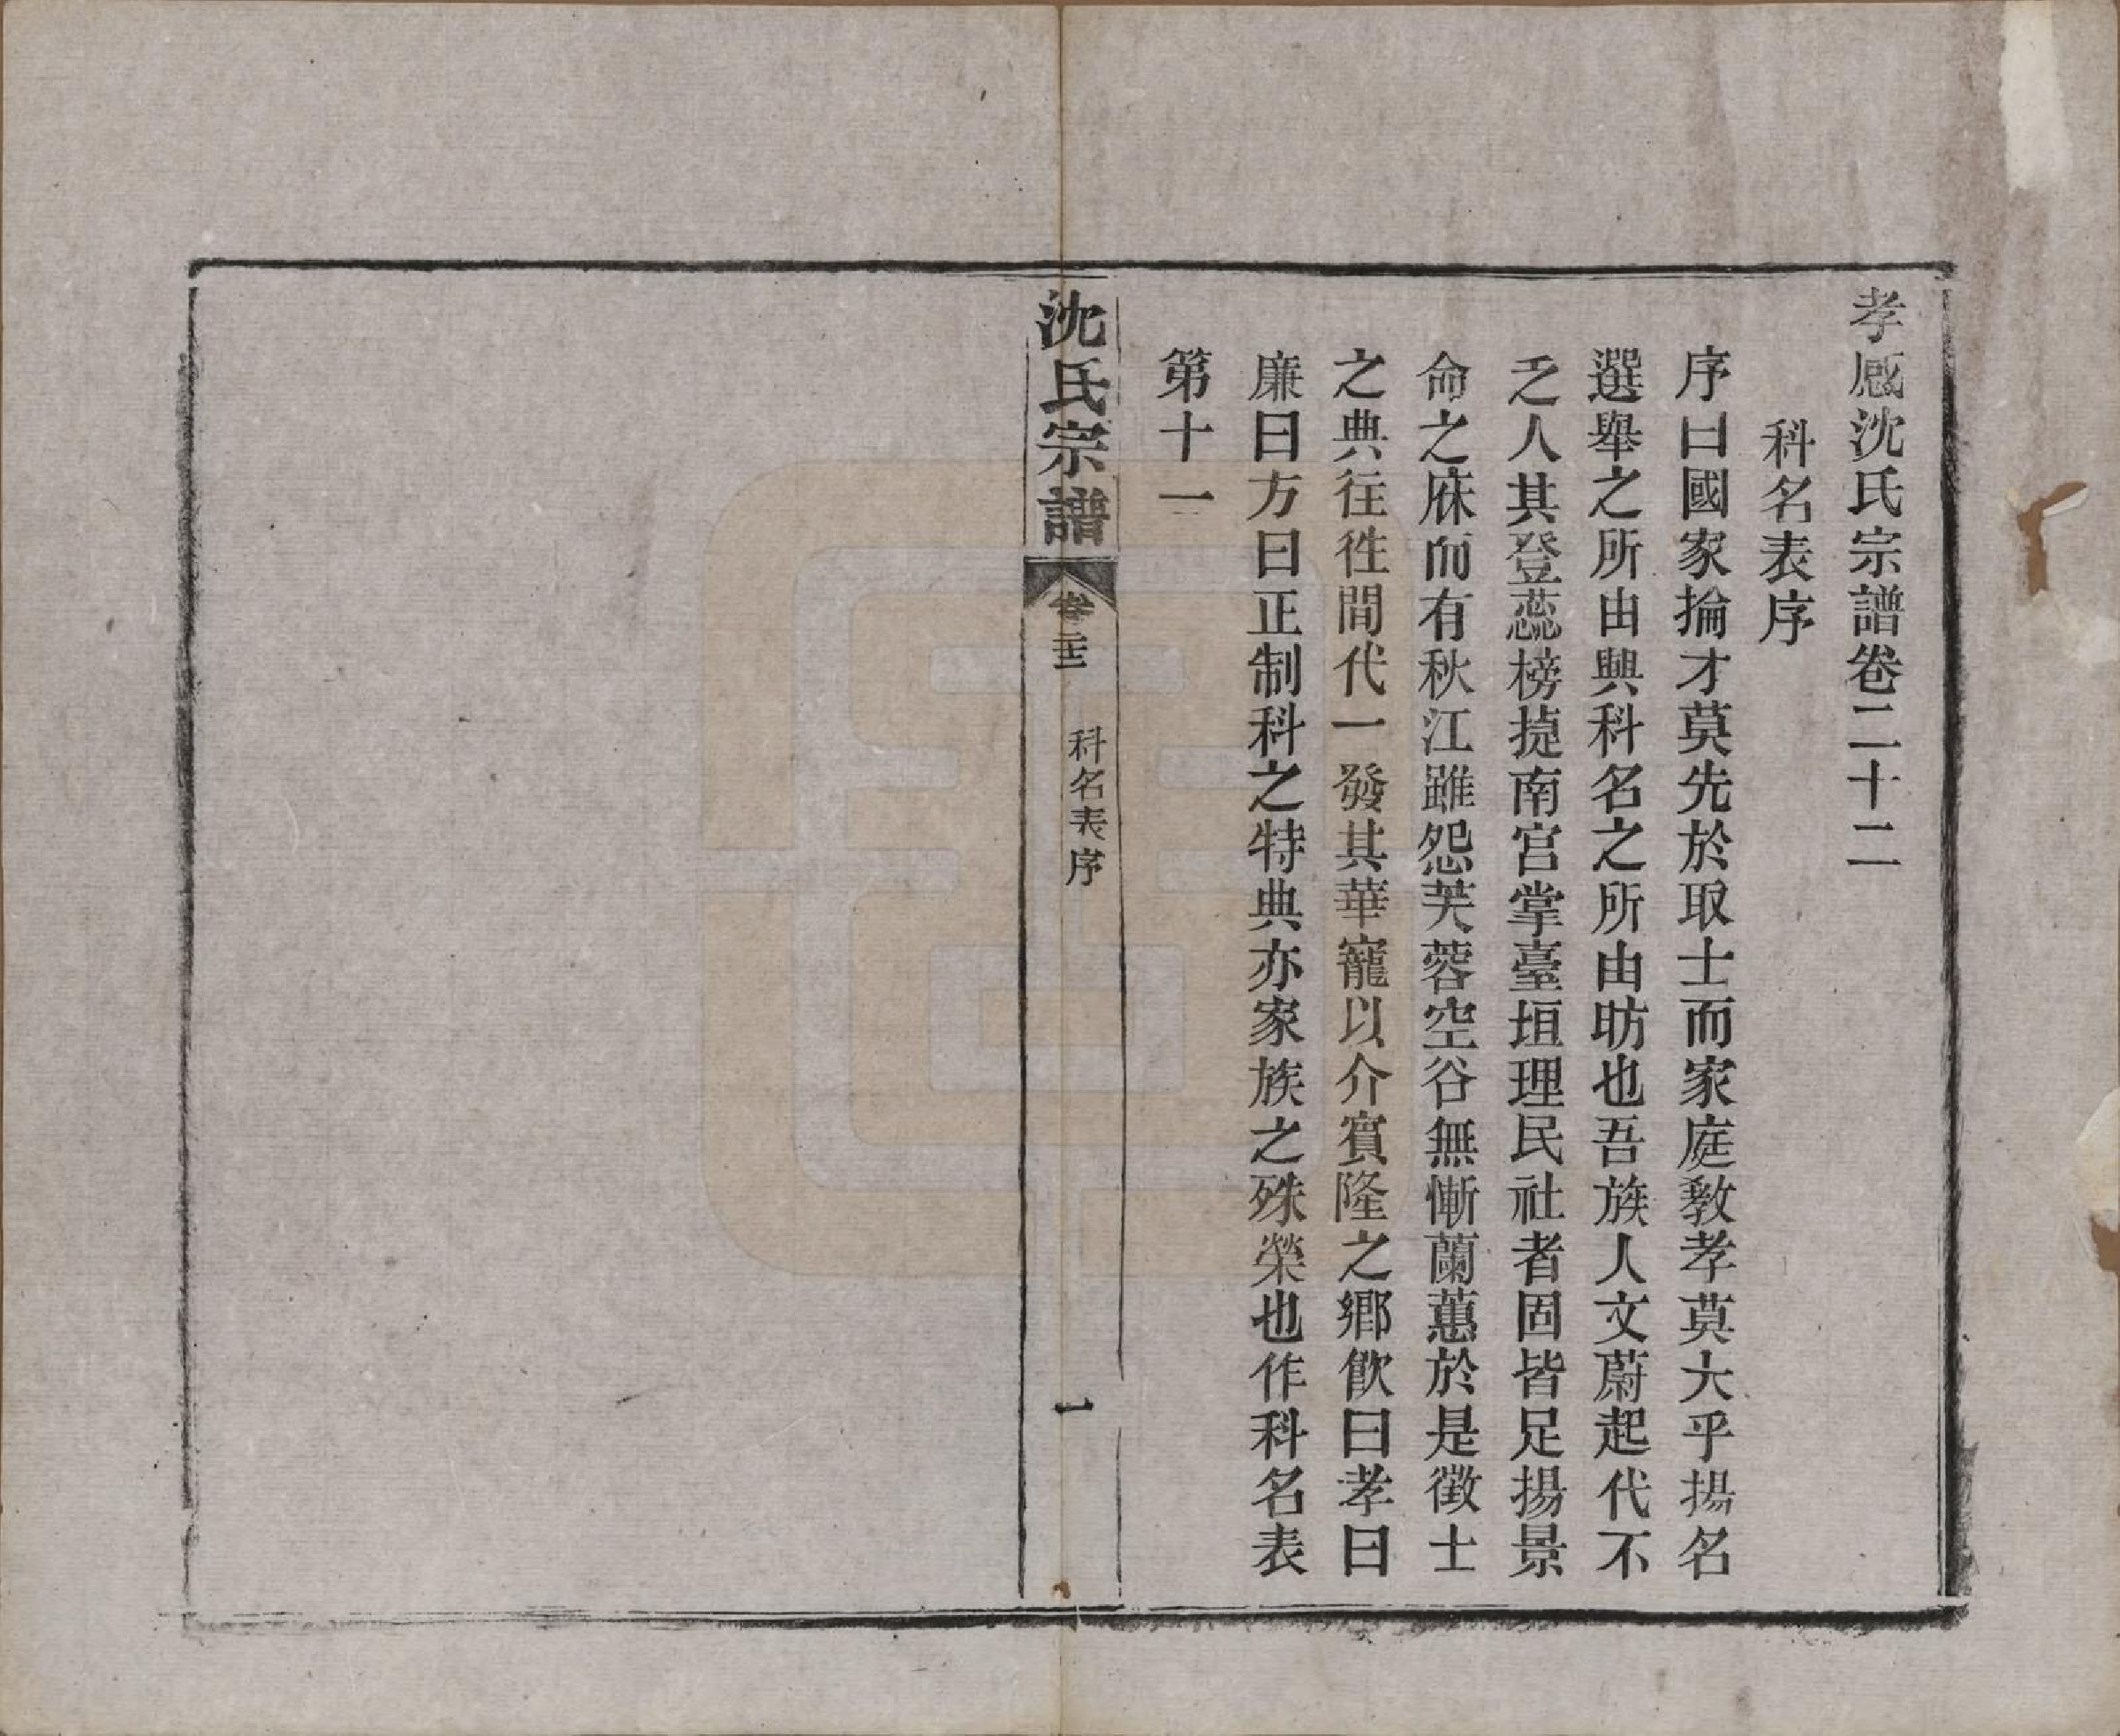 孝感沈氏宗譜卷二十二
科名表序
序曰國家掄才莫先於取士而家庭敎孝莫大乎揚名
選舉之所由興科名之所由昉也吾族人文蔚起代不
乏人其登蕊榜㨗南宮掌臺垣理民社者固皆足揚景
命之庥而有秋江雖怨芙蓉空谷無慚蘭蕙於是徵士
之典往徃間代一發其華寵以介賓隆之鄉飮曰孝曰
廉曰方曰正制科之特典亦家族之殊榮也作科名表
第十一
沈氏宗譜
卷二十二
科名表序
一